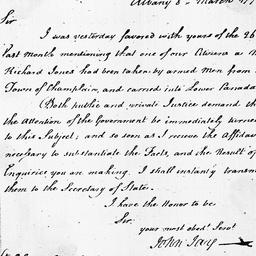 Albany 8. March 17
Sir
I was yesterday favored with yours of the 26
last Month mentioning that one of our Citizens a M
Richard Jones had been taken by armed men from
Town of Champlain, and carried into Lower Canada
Both public and private Justice demand th
the attention of the Government be immediately turned
to this Subject; and so soon as I recieve the Affidav
necessary to substantiate the Facts, and the Result of
Inquiries you are making. I shall instantly transm
them to the Secretary of State.
I have the Honor to be
Sir
your most obedt Servt
John Jay